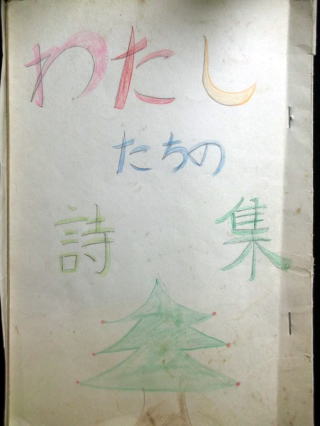 わたし
たちの
詩集